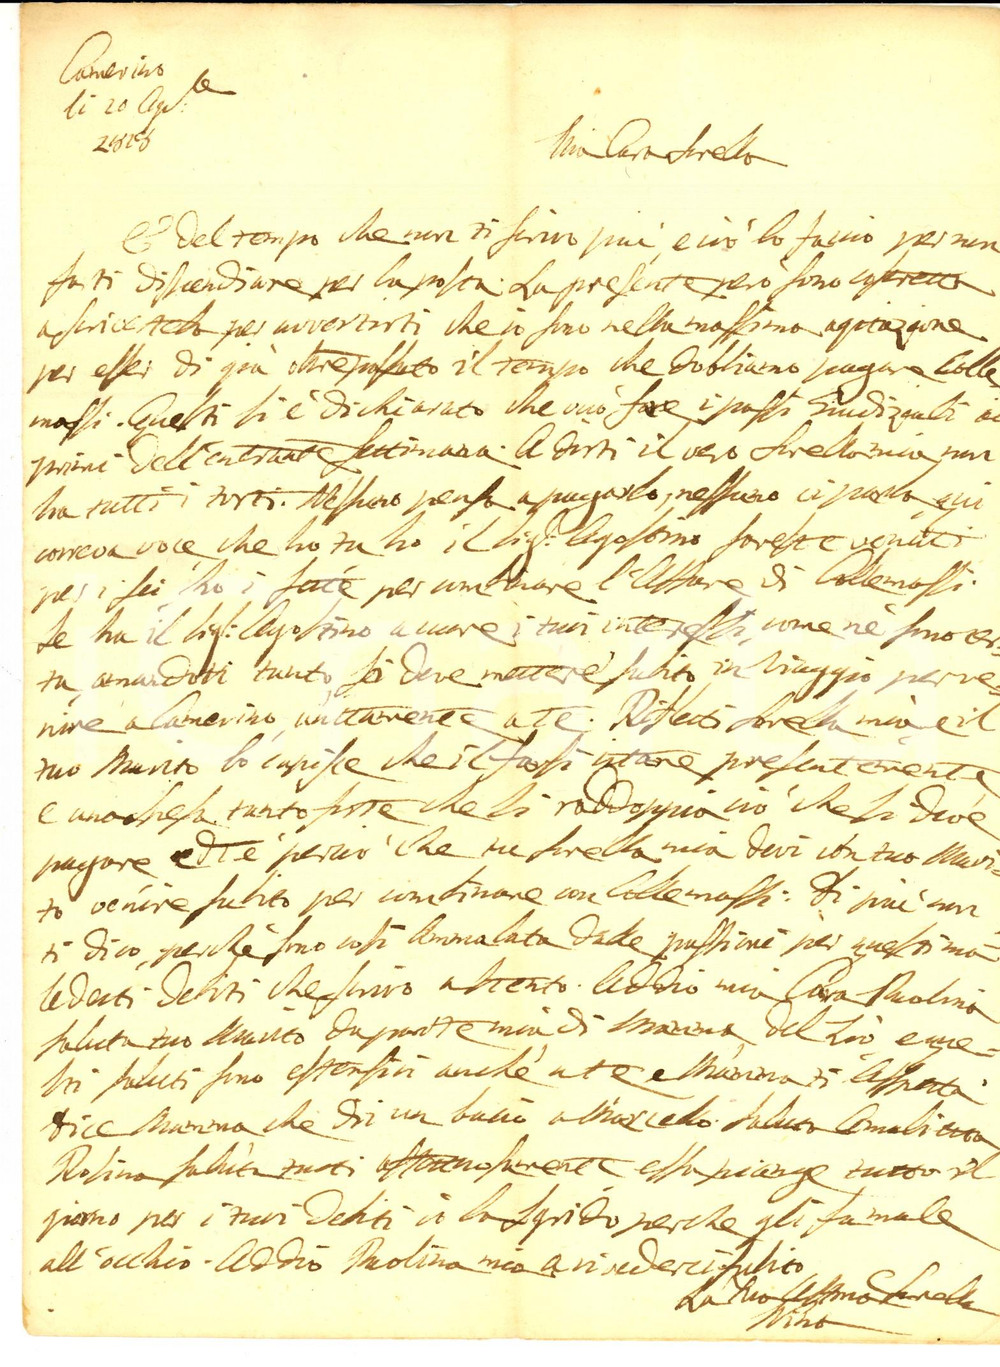 Camerino
li 20 Ag.to
Mia Cara Sorella
È del tempo che non ti scrivo più, e ciò lo faccio per non
farti dispendiare per la posta. La presente però sono costretta
a scrivertela per avvertirti che io sono nella massima agitazione
per esser di già oltrepassato il tempo che dobbiamo pagare Colle
massi. Questi si è dichiarato che vuò fare i passi Giudiziali ai
primi dell'entrante Settimana. A dirti il vero Sorella mia, non
ha tutti i torti. Nessuno pensa a pagarlo, nessuno ci parla, qui
correva voce che tu ho il Sig.r Agostino sareste venuti
per i sei ho i sette per combinare l'Affare di Collemassi.
Se ha il Sig.r Agostino a cuore i tuoi interessi, come ne sono cer-
ta, amandoti tanto, si deve mettere subito in Viaggio per ve-
nire a Camerino, unitamente a te. Rifletti Sorella mia, e il
tuo Marito lo capisce che il farsi citare presentemente
è una spesa tanto forte che si raddoppia ciò che si deve
pagare ed è perciò che tu Sorella mia devi con tuo Mari-
to venire subito per combinare con Collemassi. Di più non
ti dico, perché sono così Ammalata dalle passioni per questi ma-
ledetti Debiti che scrivo a stento. Addio mia Cara Paolina
saluta tuo Marito da parte mia, di Mamma, del Zio, e que-
sti saluti sono estensivi anche a te e Mamma ti Aspetta
dice Mamma che dii un bacio a Marcello. Saluta
Rosina saluta tutti essa piange tutto il
giorno per i tuoi Debiti io la sgrido perche gli fa male
all'occhio. Addio Paolina mia a rivederci subito
La Tua Aff.ma Sorella